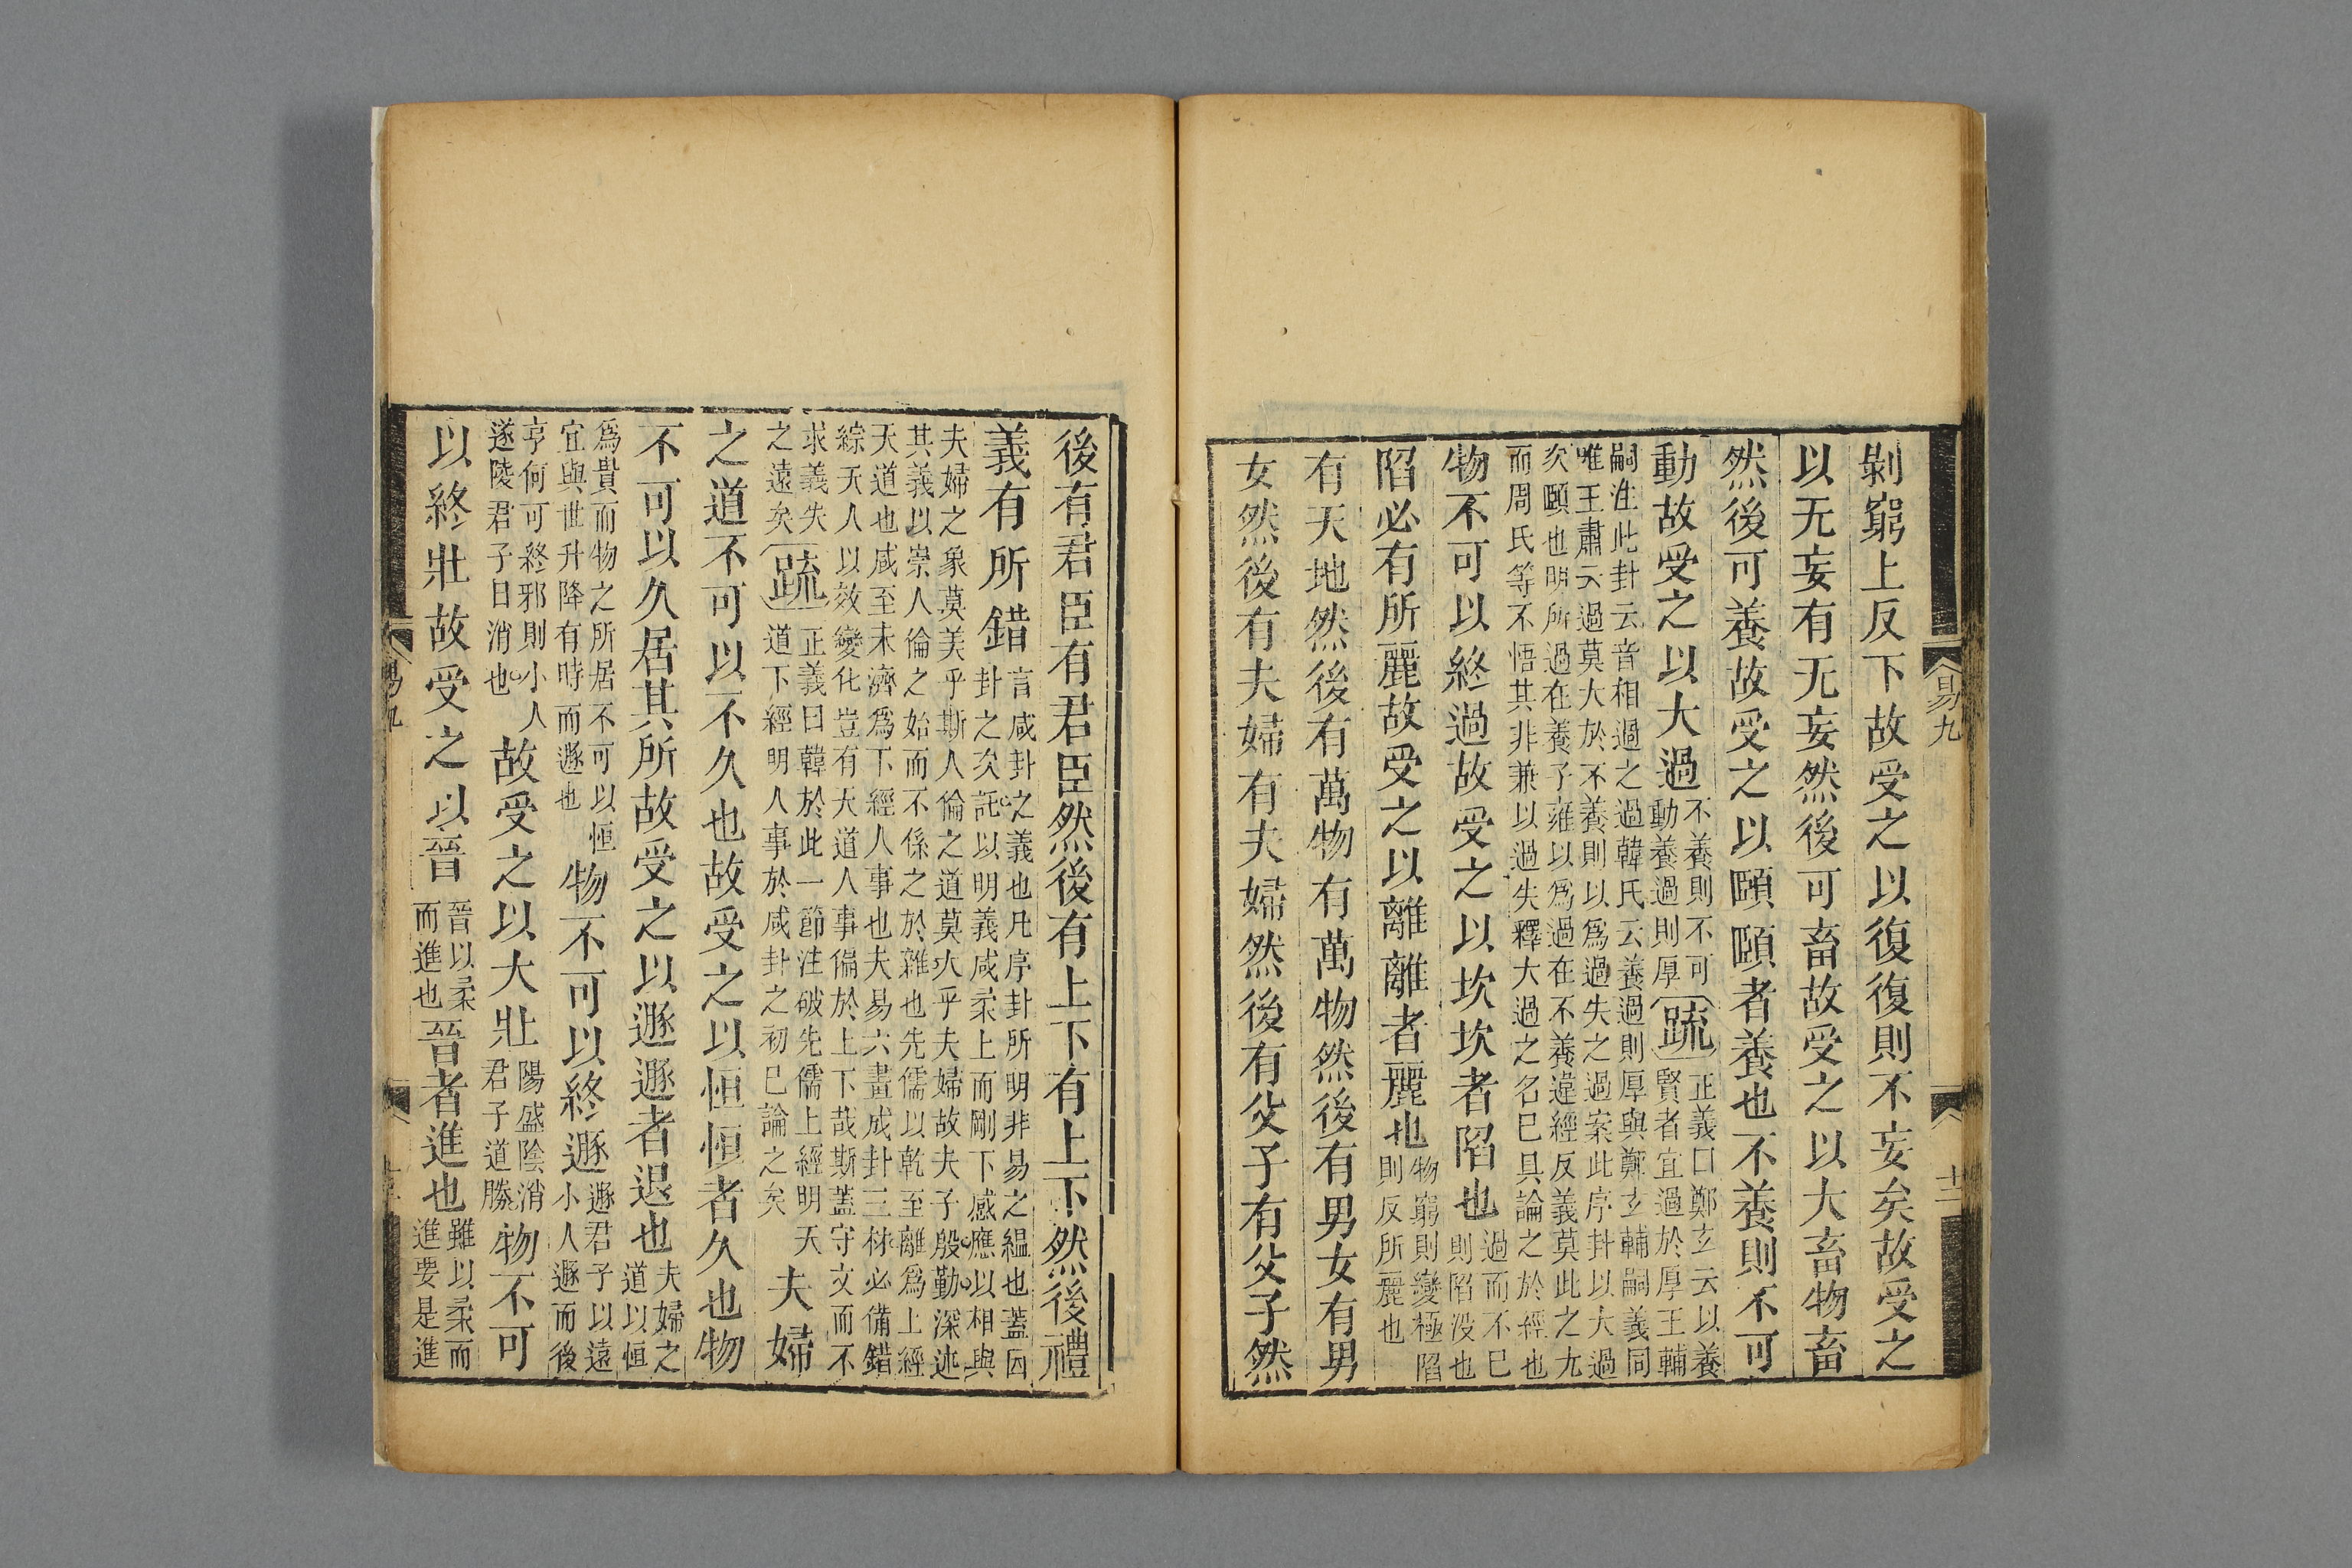 易九 十二
剝窮上反下故受之以復復則不妄矣故受之
以无妄有无妄然後可畜故受之以大畜物畜
然後可養故受之以頤頤者養也不養則不可
動故受之以大過
不養則不可
動養過則厚
疏
正義曰鄭玄云以養
賢者宜過於厚王輔
嗣注此卦云音相過之過韓氏云養過則厚與鄭玄輔嗣義同
唯王肅云過莫大於不養則以爲過失之過案此序卦以大過
次頤也明所過在養子雍以爲過在不養違經反義莫此之尤
而周氏等不悟其非兼以過失釋大過之名已具論之於經也
物不可以終過故受之以坎坎者陷也
過而不已
則陷没也
陷必有所麗故受之以離離者麗也
物窮則變極陷
則反所麗也
有天地然後有萬物有萬物然後有男女有男
女然後有夫婦有夫婦然後有父子有父子然
後有君臣有君臣然後有上下有上下然後禮
義有所錯
言咸卦之義也凡序卦所明非易之緼也蓋因
卦之次託以明義咸柔上而剛下感應以相與
夫婦之象莫美乎斯人倫之道莫大乎夫婦故夫子殷勤深述
其義以崇人倫之始而不係之於離也先儒以乾至離爲上經
天道也咸至未濟爲下經人事也夫易六畫成卦三材必備錯
綜天人以效變化豈有天道人事偏於上下哉斯蓋守文而不
求義失
之遠矣
疏
正義曰韓於此一節注破先儒上經明天
道下經明人事於咸卦之初已論之矣
夫婦
之道不可以不久也故受之以恒恒者久也物
不可以久居其所故受之以遯遯者退也
夫婦之
道以恒
爲貴而物之所居不可以恒
宜與世升降有時而遯也
物不可以終遯
遯君子以遠
小人遯而後
亨何可終邪則小人
遂陵君子日消也
故受之以大壯
陽盛陰消
君子道勝
物不可
以終壯故受之以晉
晉以柔
而進也
晉者進也
雖以柔而
進要是進
易九